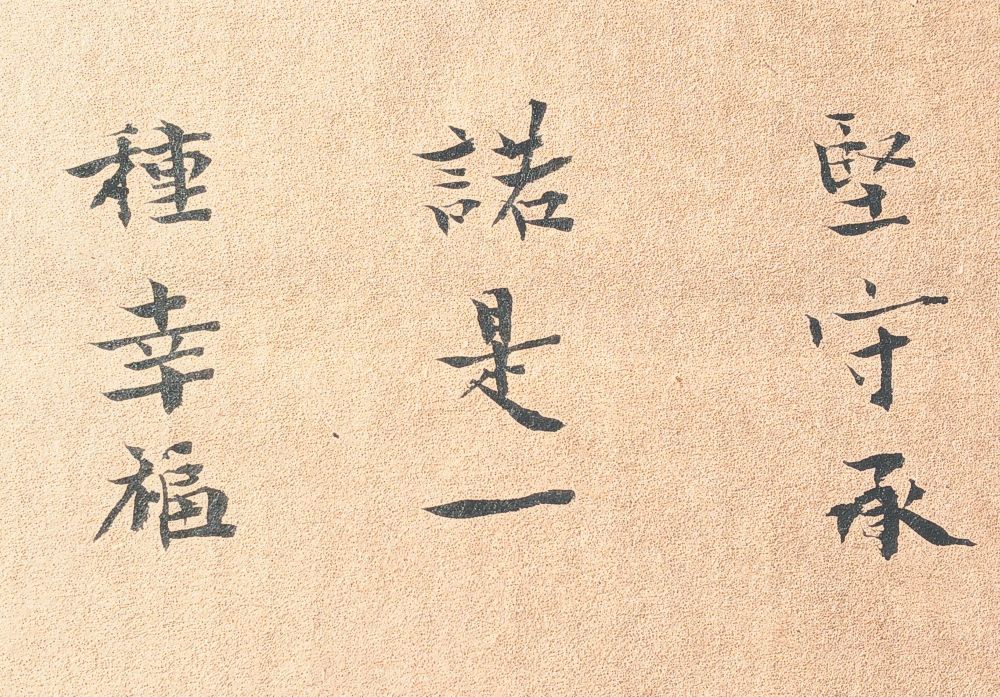 堅守承
諾是一
種幸福